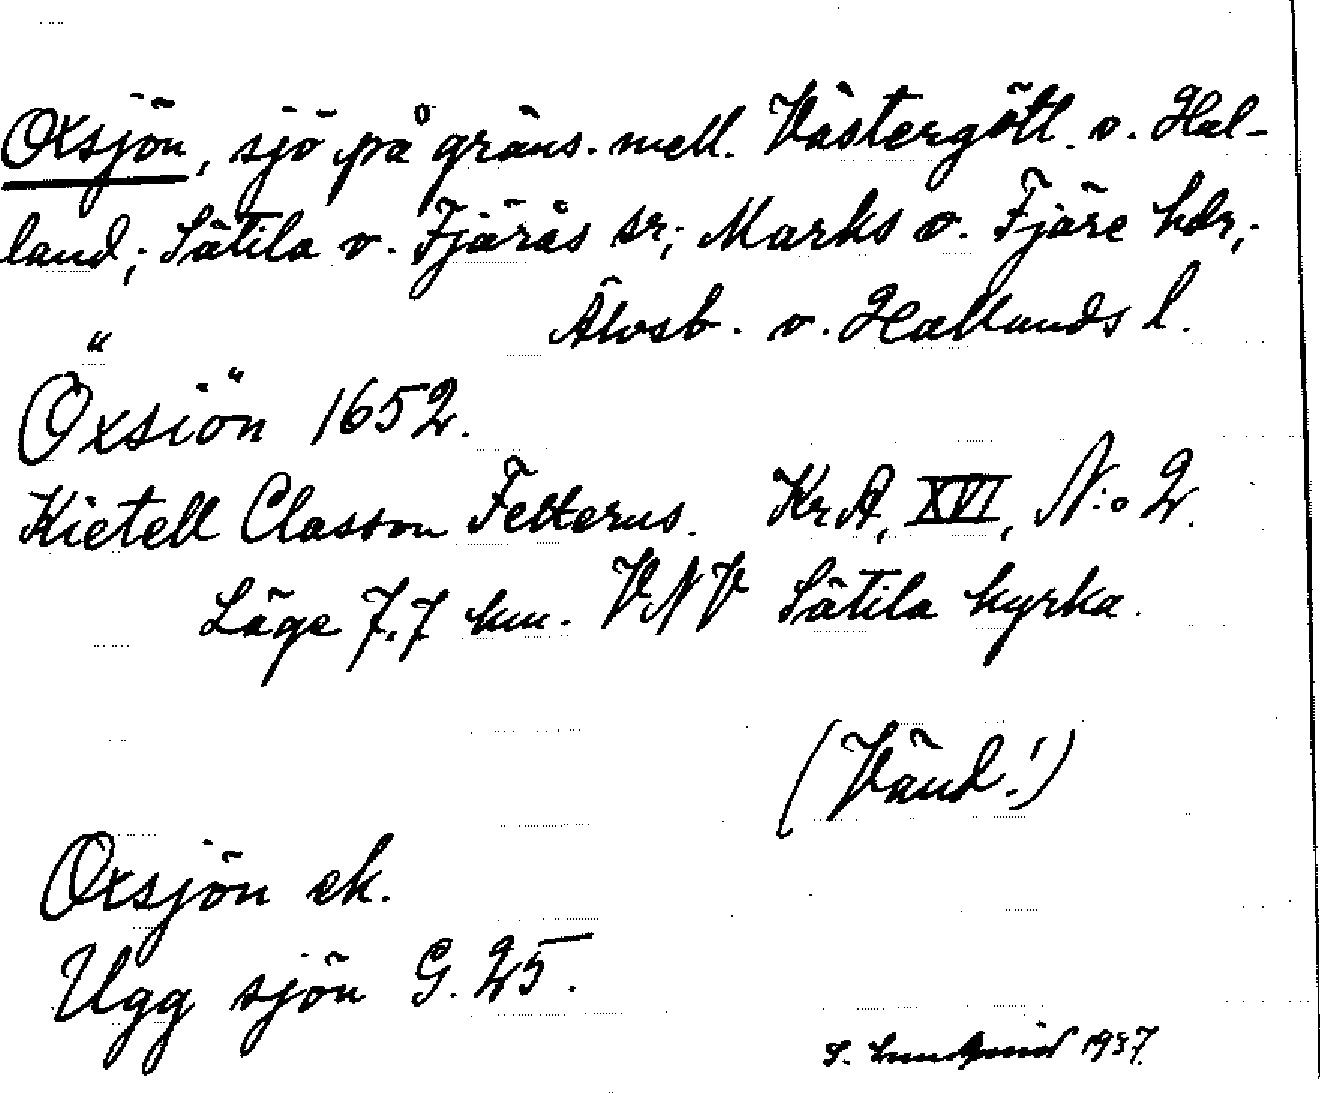 Oxsjön, sjö på gräns. mell. Västergötl. o. Hal-
land; Sätila o. Fjärås sr; Marks o. Fjäre hdr;
Älvsb. o. Hallands l.
Öxsiön 1652.
Kietell Classon Felterus. KrA, XVI, N:o 2.
Läge 7.7 km. VNV Sätila kyrka.
(Vänd!)
Oxsjön ek.
Ugg sjön G. 25.
S. 1937.